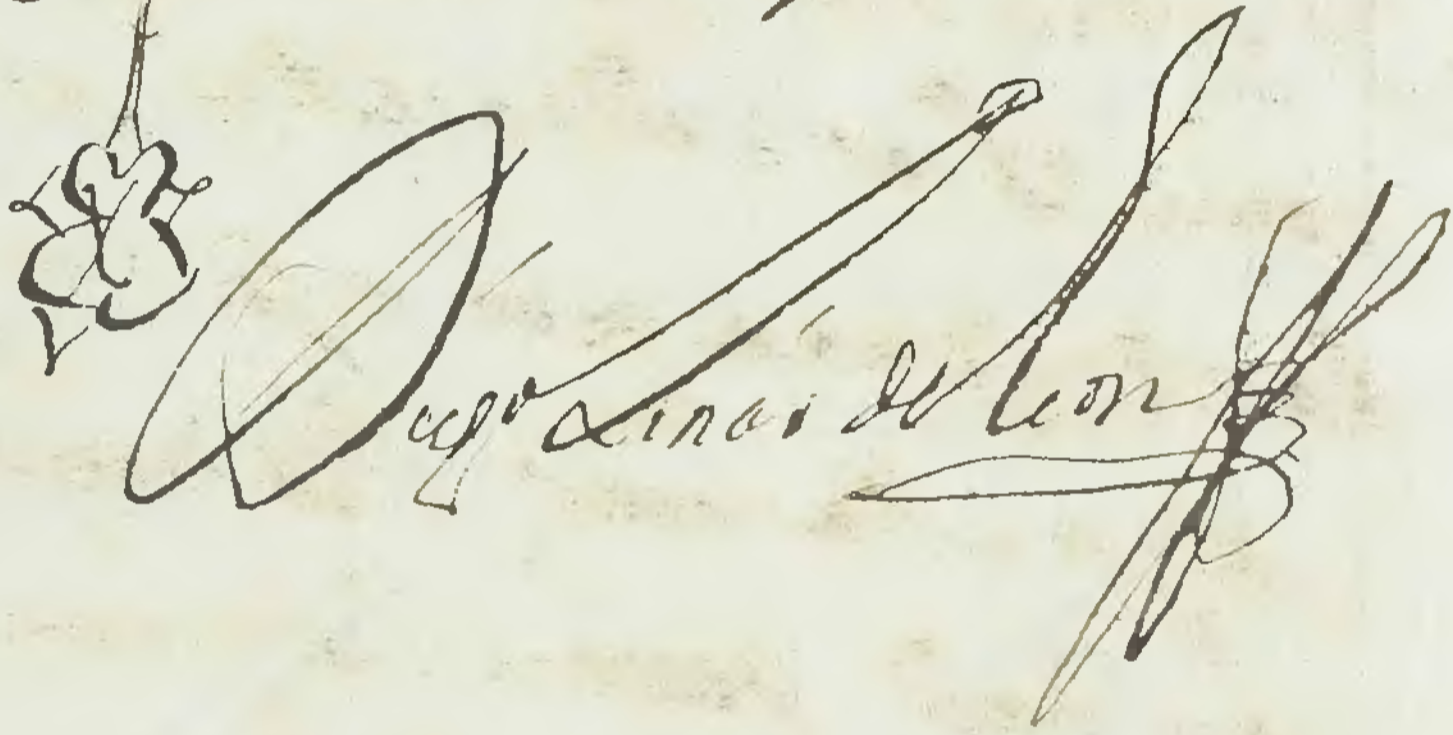 Diego Linás de leon